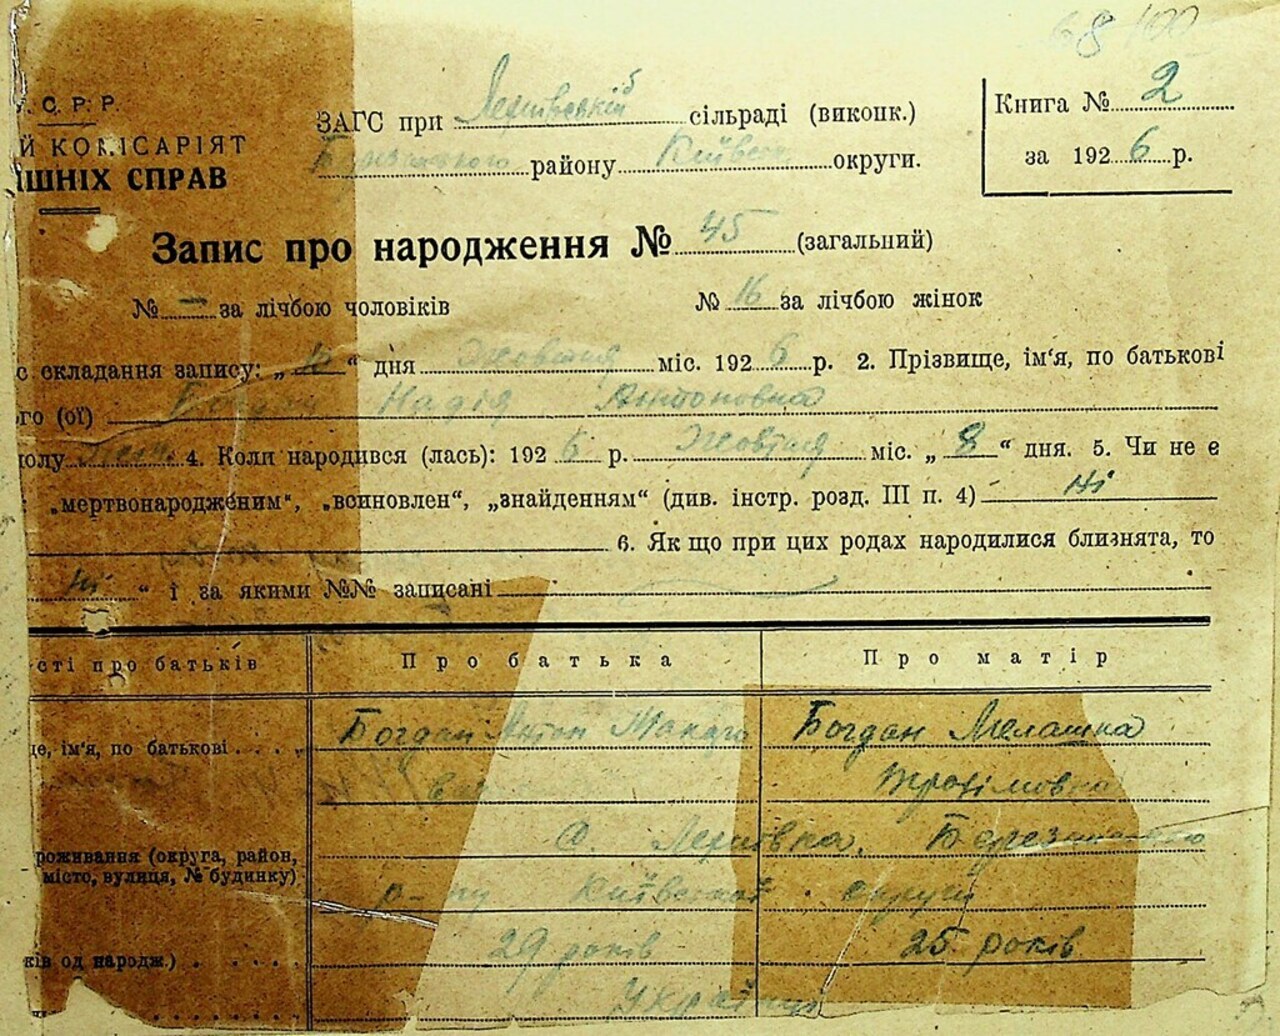 68 100
У. С. Р. Р.
Й КОМІСАРІЯТ
ІШНІХ СПРАВ
ЗАГС при сільраді (виконк.)
району Київськ округи.
Книга № 2
за 1926 р.
Запис про народження № 45 (загальний)
№ — за лічбою чоловіків № 16 за лічбою жінок
с складання запису: „ “ дня Жовтня міс. 1926 р. 2. Прізвище, ім'я, по батькові
го (ої) Богдан Надія Антоновна
олу жен. 4. Коли народився (лась): 1926 р. Жовтня міс. „ 8 “ дня. 5. Чи не є
: „мертвонародженим“, „всиновлен“, „знайденням“ (див. інстр. розд. III п. 4) Ні
6. Як що при цих родах народилися близнята, то
Ні “ і за якими №№ записані
сті про батьків Про батька Про матір
Богдан Антон Макаро Богдан Мелашка
це, ім'я, по батькові
в Трохімовна
С. Березанського
роживання (округа, район,
місто, вулиця, № будинку)
р-ну Київської округи
29 років 25 років
ків од народж.)
Українці